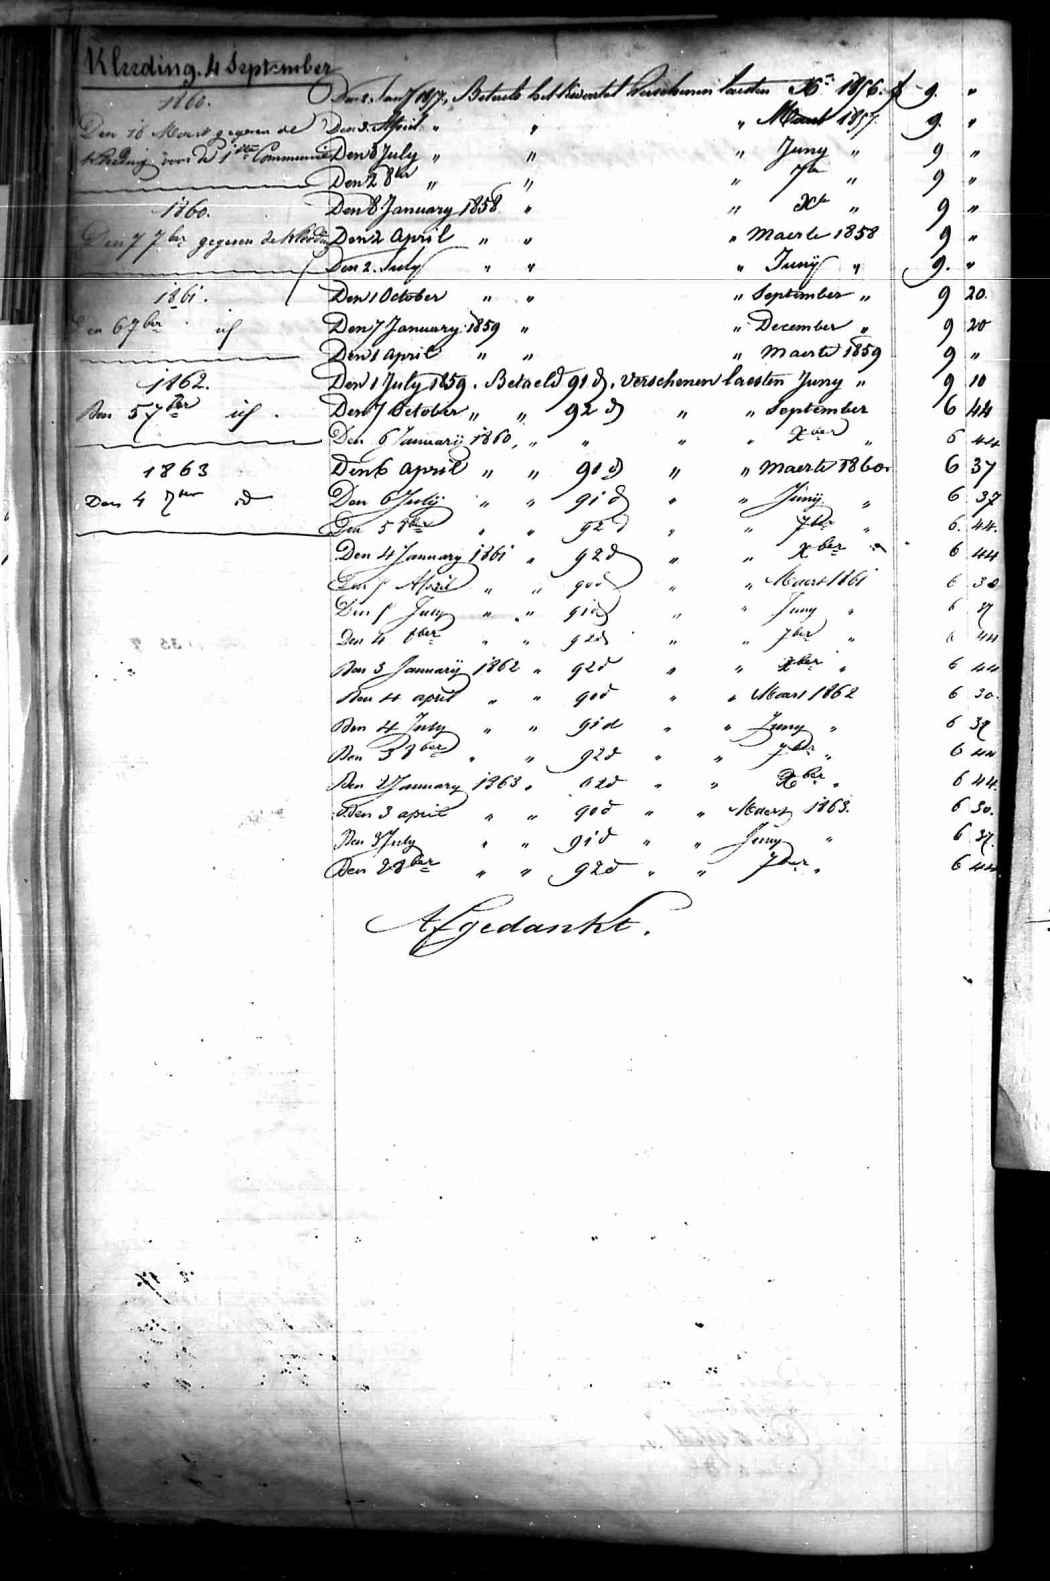 Kleeding. 4 September
1860.
Den 16 Maert gegeven de
kleeding voor de 1ste Communie
1860.
Den 7 7ber gegeven de kleeding
1861.
Den 6 7ber id
1862.
Den 5 7ber id.
1863
Den 4 7ber id
Den 2 Jan 1857. Betaeld het kwartel verschenen laesten Xber 1856. f 9. "
Den 3. April " " " Maert 1857. 9. "
Den 3 July " " " Juny " 9 "
Den 2 8ber " " " 7br " 9 "
Den 8 January 1858 " " Xbr " 9 "
Den 2 April " " " Maerte 1858 9 "
Den 2. July " " " Juny " 9. "
Den 1 October " " " September " 9 20.
Den 7 January 1859 " " December " 9 20
Den 1 April " " " Maerte 1859 9 "
Den 1 July 1859. Betaeld 91 d. verschenen laesten Juny " 9 10
Den 7 October " " 92 d " " September 6 44
Den 6 January 1860 " " " " " Xber " 6 44
Den 6 April " " 91 d " " Maerte 1860. 6 37
Den 6 July " " 91 d " " Juny " 6 37
Den 5 8ber " " 92 d " " 7br " 6. 44.
Den 4 January 1861 " 92 d " " Xber " 6 44
Den 5 April " " 90 d " " Maert 1861 6 30
Den 5 July " " 91 d " " Juny " 6 37
Den 4 8ber " " 92 d " " 7ber " 6 44
Den 3 January 1862 " 92 d " " Xber " 6 44
Den 4 april " " 90 d " " Maert 1862 6 30.
Den 4 July " " 91 d " " Juny " 6 37
Den 3 8ber " " 92 d " " 7br " 6 44
Den 2 January 1863 " 92 d " " Xber " 6 44.
Den 3 april " " 90 d " " Maert 1863. 6 30.
Den 3 July " " 91 d " " Juny " 6 37.
Den 2 8ber " " 92 d " " 7ber " 6 44
Afgedankt.